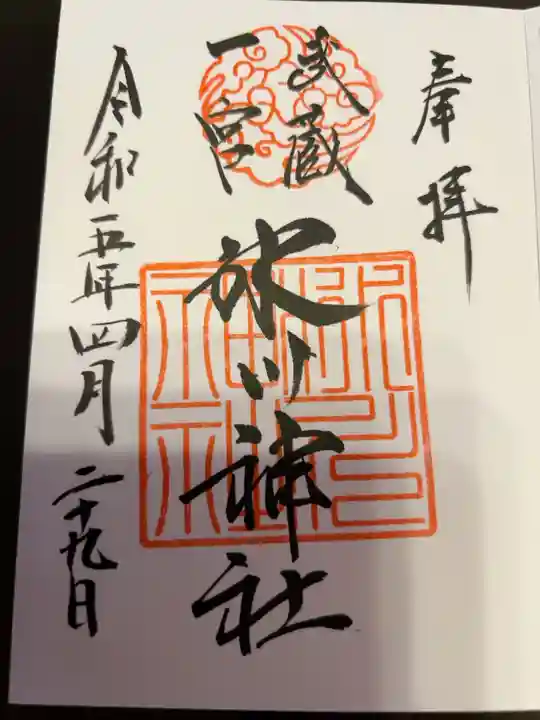 奉拝
武蔵
一宮
氷川神社
令和五年四月二十九日
氷川
神社